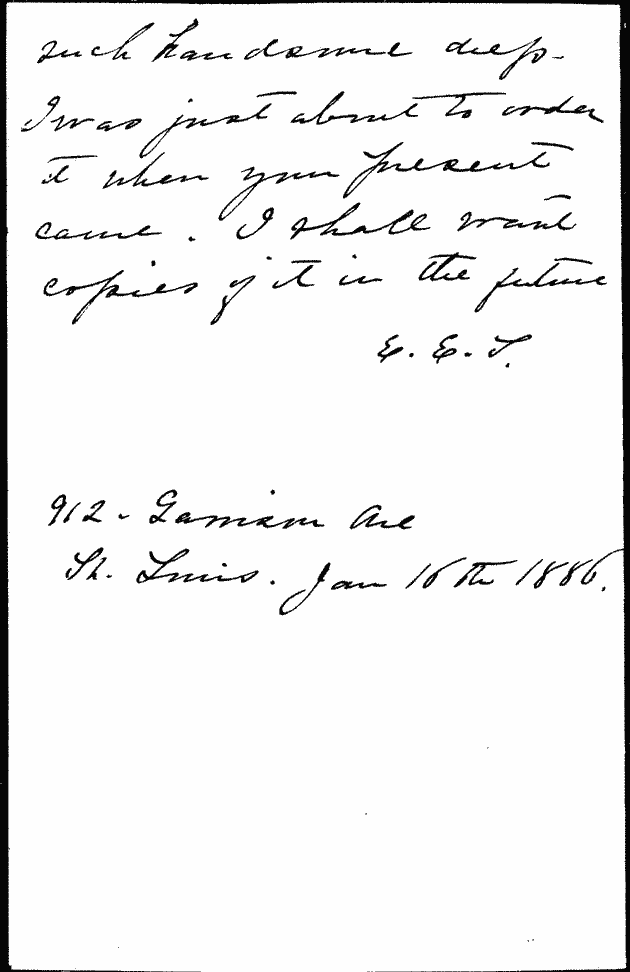 such handsome dress-
I was just about to order
it when your present
came. I shall want
copies of it in the future
E. E. S.
912 - Garrison Ave
St. Louis. Jan 16th 1886.